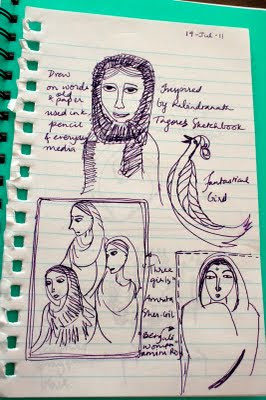 19-Jul-11
Draw
on words
& old
paper
used ink,
pencil
& everyday
media
Inspired
by Rabindranath
Tagore's Sketchbook
Fantastical
Bird
"Three
girls"
Amrita
Sher-Gil
Bengali
woman
Jamini Roy